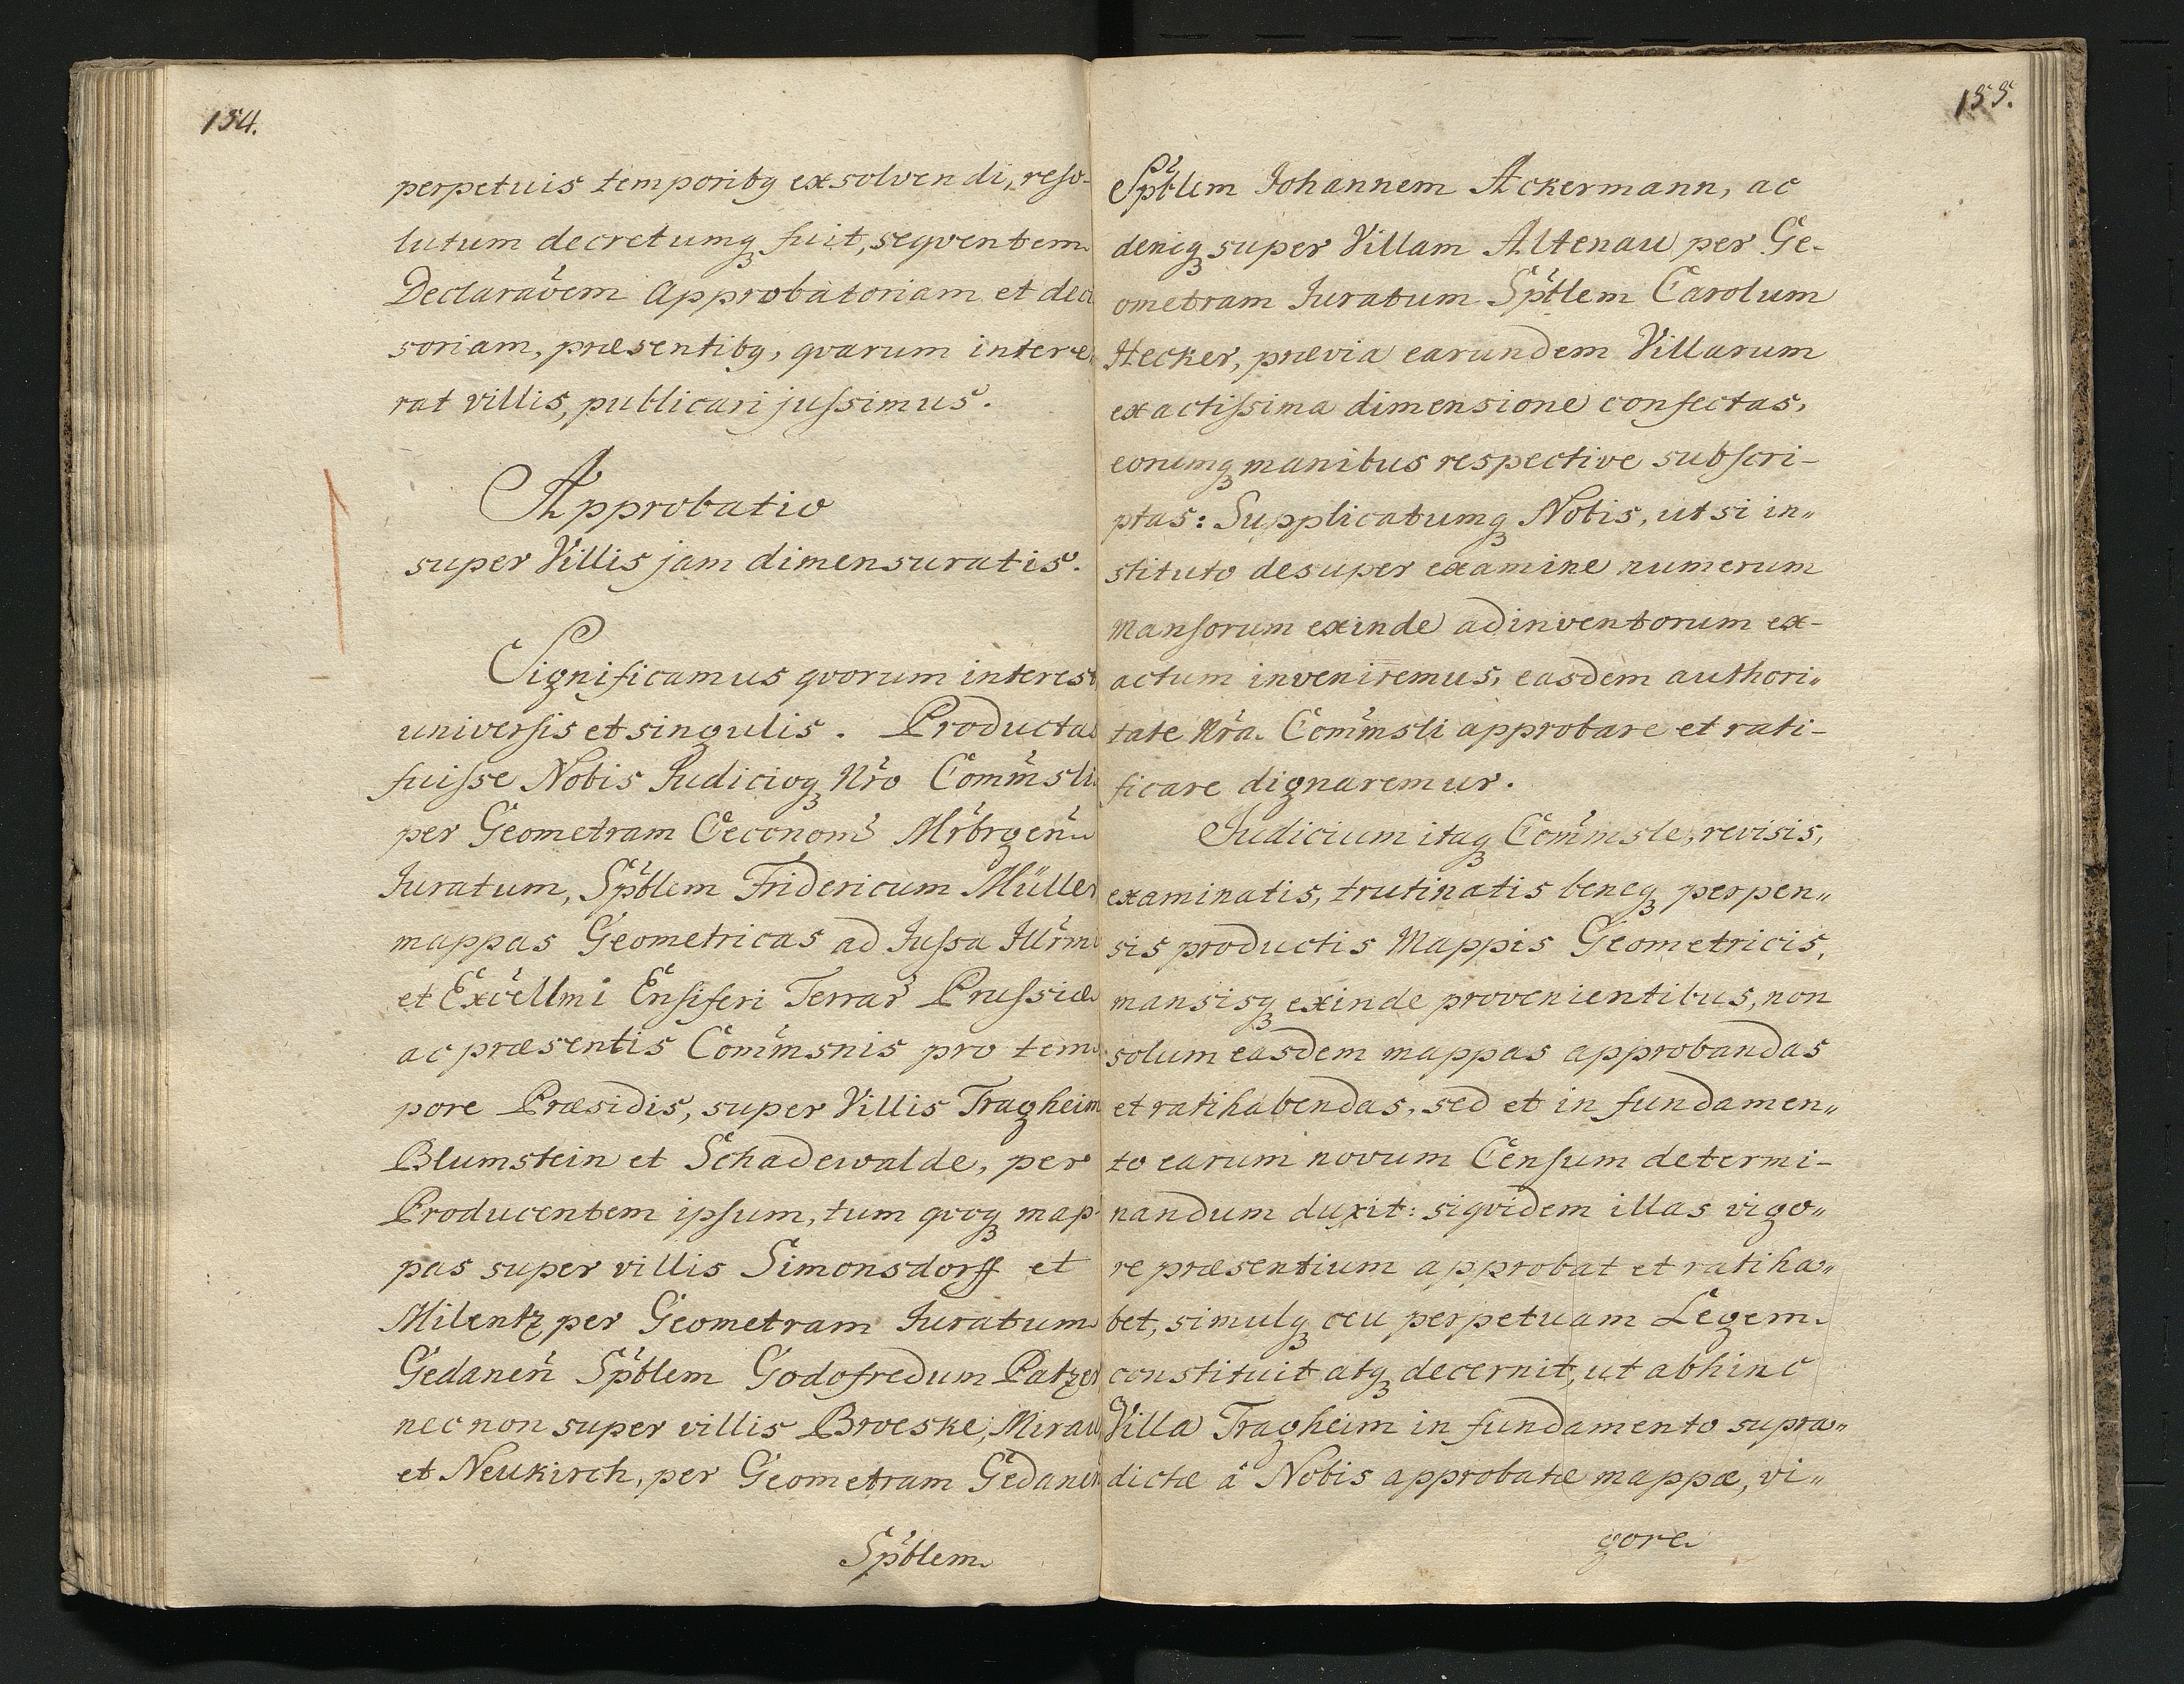 154.
perpetuis temporibq exsolvendi, reso-
lutum decretumq fuit, seqventem
Declaraõem Approbatoriam et deci
soriam, præsentibq, qvarum intere
rat villis, publicari jussimus.
Approbatio
super Villis jam dimensuratis.
Significamus qvorum interest
universis et singulis. Productas
fuisse Nobis Judicioq Nro Commsli
per Geometram Oeconom Mrbrgen
Juratum, Sptlem Fridericum Müller
mappas Geometricas ad Jussa Illrmi
et Excellmi Ensiferi Terrar Prussiæ
ac præsentis Commsnis pro tem
pore Præsidis, super Villis Tragheim
Blumstein et Schadewalde, per
Producentem ipsum, tum qvoq map-
pas super villis Simonsdorff et
Milentz per Geometram Juratum
Gedanen Sptlem Godofredum Patzer
nec non super villis Broeske, Mirau
et Neukirch, per Geometram Gedanen
Sptlem
155.
Sptlem Johannem Ackermann, ac
deniq super Villam Altenau per Ge-
ometram Juratum Sptlem Carolum
Hecker, prævia earundem Villarum
exactissima dimensione confectas,
eorumq manibus respective subscri-
ptas: Supplicatumq Nobis, ut si in„
stituto desuper examine numerum
Mansorum exinde adinventorum ex-
actum inveniremus, easdem authori„
tate Nra Commsli approbare et rati-
ficare dignaremur.
Judicium itaq Commsle, revisis,
examinatis, trutinatis beneq perpen„
sis productis Mappis Geometricis,
mansisq exinde provenientibus, non
solum easdem mappas approbandas
et ratihabendas, sed et in fundamen„
to earum novum Censum determi-
nandum duxit: siqvidem illas vigo„
re præsentium approbat et ratiha„
bet, simulq ceu perpetuam Legem
constituit atq decernit, ut abhinc
Villa Tragheim in fundamento supra„
dictæ â Nobis approbatæ mappæ, vi„
gore